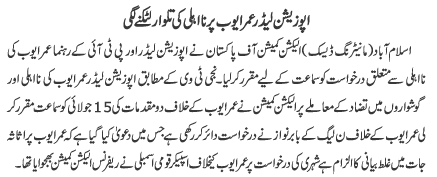 اپوزیشن لیڈر عمر ایوب پر نااہلی کی تلوار لٹکنے لگی
اسلام آباد (مانیٹرنگ ڈیسک) الیکشن کمیشن آف پاکستان نے اپوزیشن لیڈر اور پی ٹی آئی کے رہنما عمر ایوب کی
نااہلی سے متعلق درخواست کو سماعت کے لیے مقرر کر لیا۔ نجی ٹی وی کے مطابق اپوزیشن لیڈر عمر ایوب کی نااہلی اور
گوشواروں میں تضاد کے معاملے پر الیکشن کمیشن نے عمر ایوب کے خلاف دو مقدمات کی 15 جولائی کو سماعت مقرر کر
لی عمر ایوب کے خلاف ن لیگ کے بابر نواز نے درخواست دائر کر رکھی ہے جس میں دعویٰ کیا گیا ہے کہ عمر ایوب پر اثاثہ
جات میں غلط بیانی کا الزام ہے شہری کی درخواست پر عمر ایوب کیخلاف اسپیکر قومی اسمبلی نے ریفرنس الیکشن کمیشن بھجوایا تھا۔